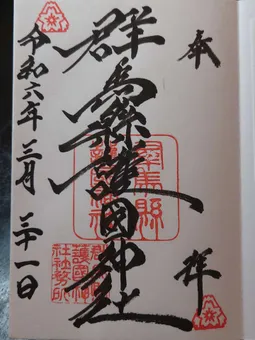 奉拝
群馬縣護国神社
令和六年三月三十一日
群馬縣護國神社
群馬縣
護國神
社社務所